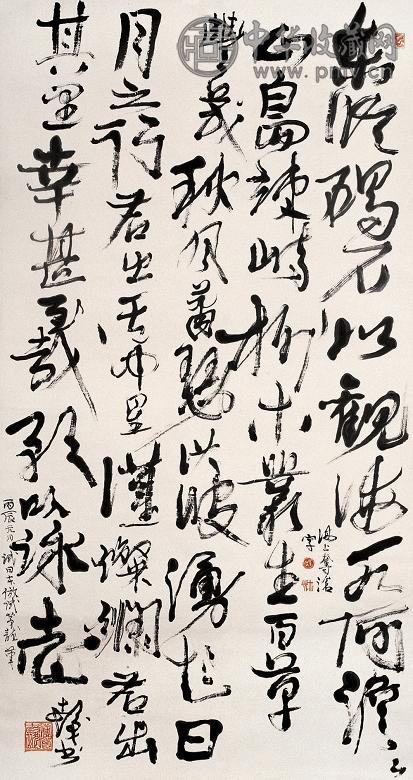 中华收藏网
東臨碣石以觀滄海水何澹〻
山島竦峙樹木叢生百草
豐茂秋風蕭瑟洪波湧起日
月之行若出其中星漢燦爛若出
其里幸甚至哉歌以詠志
丙辰元月